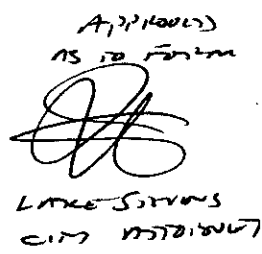 APPROVED
AS TO FORM
LAKE STEVENS
CITY ATTORNEY